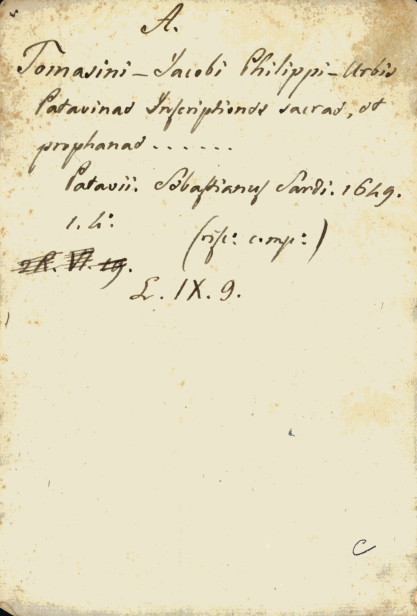 A.
Tomasini - Jacobi Philippi - Urbis
Patavinae Inscriptiones sacrae, et
prophanae . . . . . .
Patavii. Sebastianus Sardi. 1649.
1. 4:
(risc: comp:)
IX. VI. 19.
L. IX. 9.
C